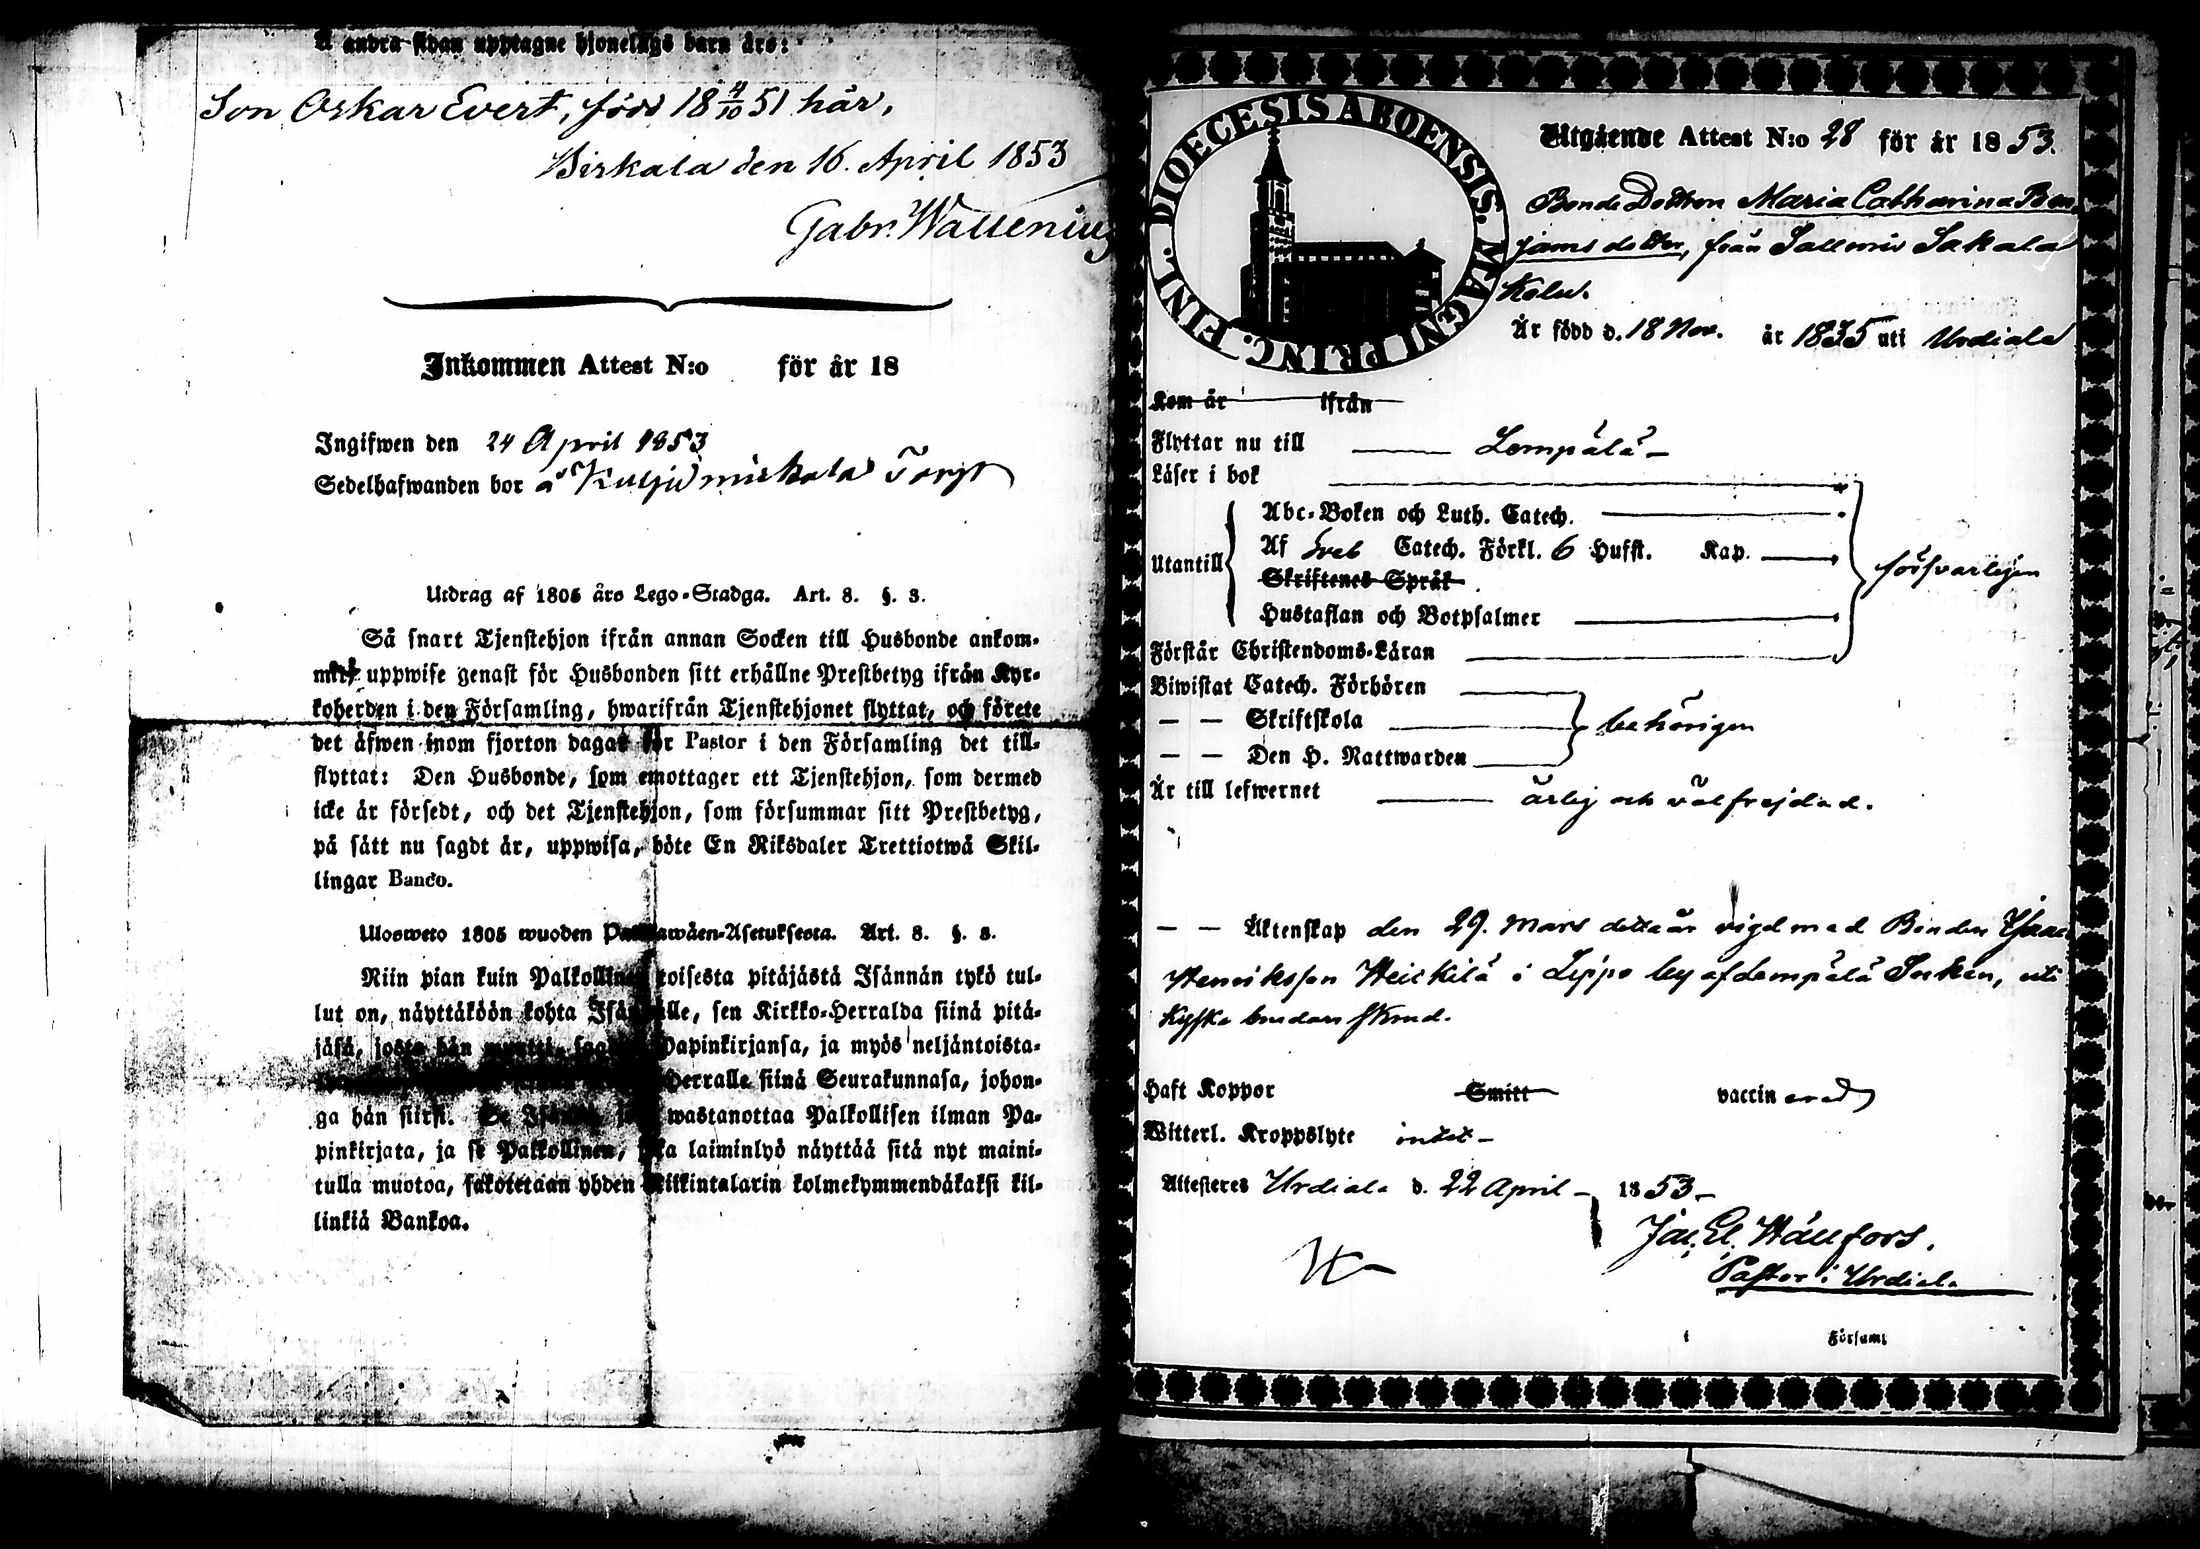 å andra sidan upptagne hjonelags barn äro:
Son Oskar Evert, född 18 4/10 51 här,
Birkala den 16. April 1853
Gabr. Wallenius
Inkommen Attest N:o för år 18
Ingifwen den 24 April 1853
Sedelhafwanden bor å Kuljo Torp
Utdrag af 1805 års Lego-Stadga. Art. 8. §. 3.
Så snart Tjenstehjon ifrån annan Socken till Husbonde ankom-
mit, uppwise genast för Husbonden sitt erhållne Prestbetyg ifrån Kyr-
koherden i den Församling, hwarifrån Tjenstehjonet flyttat, och förete
det äfwen inom fjorton dagar för Pastor i den Församling det till-
flyttat: Den Husbonde, som emottager ett Tjenstehjon, som dermed
icke är försedt, och det Tjenstehjon, som försummar sitt Prestbetyg,
på sätt nu sagdt är, uppwisa, böte En Riksdaler Trettiotwå Skil-
lingar Banco.
Ulosweto 1805 wuoden Palkkawäen-Asetuksesta. Art. 8. §. 3.
Niin pian kuin Palkollinen toisesta pitäjästä Isännän tykö tul-
lut on, näyttäköön kohta Isännälle, sen Kirkko-Herralda siinä pitä-
jäsä, josta hän muutti, Papinkirjansa, ja myös neljäntoista-
Herralle siinä Seurakunnasa, johon-
ga hän siirsi. Se Isäntä, joka wastanottaa Palkollisen ilman Pa-
pinkirjata, ja se Palkollinen, joka laiminlyö näyttää sitä nyt maini-
tulla muotoa, sakotetaan yhden Riikintalarin kolmekymmendäkaksi kil-
linkiä Bankoa.
DIOECESIS ABOENSIS. MAGNI PRINC. FINL.
Utgående Attest N:o 28 för år 1853.
Bonde Dottren Maria Catharina Ben-
jamsdotter, från Salmis Sakala
Är född d. 18 Nov. år 1835 uti Urdiala
Kom år ifrån
Flyttar nu till Lempälä
Läser i bok
Utantill
Abc-Boken och Luth. Catech.
Af Sveb Catech. Förkl. 6 Hufst. Kap.
Skriftenes Språk
Hustaflan och Botpsalmer
Förstår Christendoms-Läran
försvarligen
Biwistat Catech. Förhören
— — Skriftskola
— — Den H. Nattwarden
behörigen
Är till lefwernet ärlig och välfrejdad.
— — Äktenskap den 29. Mars detta år vigd med Bonden Isaac
Henriksson Heickilä i Lippo by af Lempälä Socken, uti
Kyske brudars stånd.
Haft Koppor Smitt vaccinerad
Witterl. Kroppslyte intet
Attesteras Urdiala d. 22 April 1853
Jac. El. Hällfors.
Pastor i Urdiala
i Församl